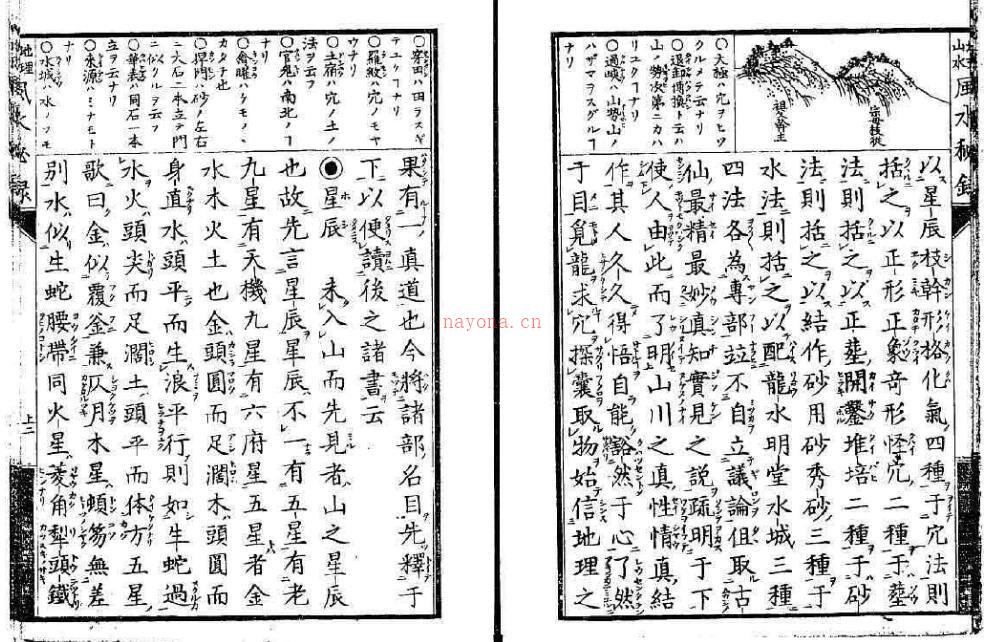 山水 風水秘録
宗母枝從
祖父幹主
○太極ハ穴ヲヒツ
クルメテ云ナリ
○退卸博換ト云ハ
山ノ勢次第ニカハ
リユクヿナリ
○過峽ハ山勢山ノ
ハザマヲスグルー
ナリ
以星辰枝幹形格化氣四種于穴法則
括之以正形正象奇形怪穴二種于塟
法則括之以正塟開鑿堆培二種于砂
法則括之以結作砂用砂秀砂三種于
水法則括之以配龍水明堂水城三種
四法各為專部竝不自立議論但取古
仙最精最妙真知實見之説疏明于下
使人由此而了明山川之真性情真結
作其人久久得悟自能豁然于心了然
于目覓龍求穴探囊取物始信地理之
○穿田ハ田ヲスギ
テユクヿナリ
○羅紋ハ穴ノモヤ
ウナリ
○土宿ハ穴ノ土ノ
法ヲ云フ
○官鬼ハ南北ノー
ナリ
○禽曜ハケモノヽ
カタチ也
○捍門ハ砂ノ左右
ニ大石二本立テ門
ニ似タルヲ云フ
○華表ハ同石一本
立ヲ云ナリ
○来源ハミナモト
ナリ
○水城ハ水ノツモ
果有一真道也今將諸部名目先釋于
下以便讀後之諸書云
◉星辰 未入山而先見者山之星辰
也故先言星辰星辰不一有五星有老
九星有天機九星有六府星五星者金
水木火土也金頭圓而足濶木頭圓而
身直水頭平而生浪平行則如生蛇過
水火頭尖而足濶土頭平而体方五星
歌曰金似覆釜兼仄月木星頓笏無差
別水似生蛇腰帶同火星菱角犁頭鐵
地理 風水秘録
上二
nayona.cn